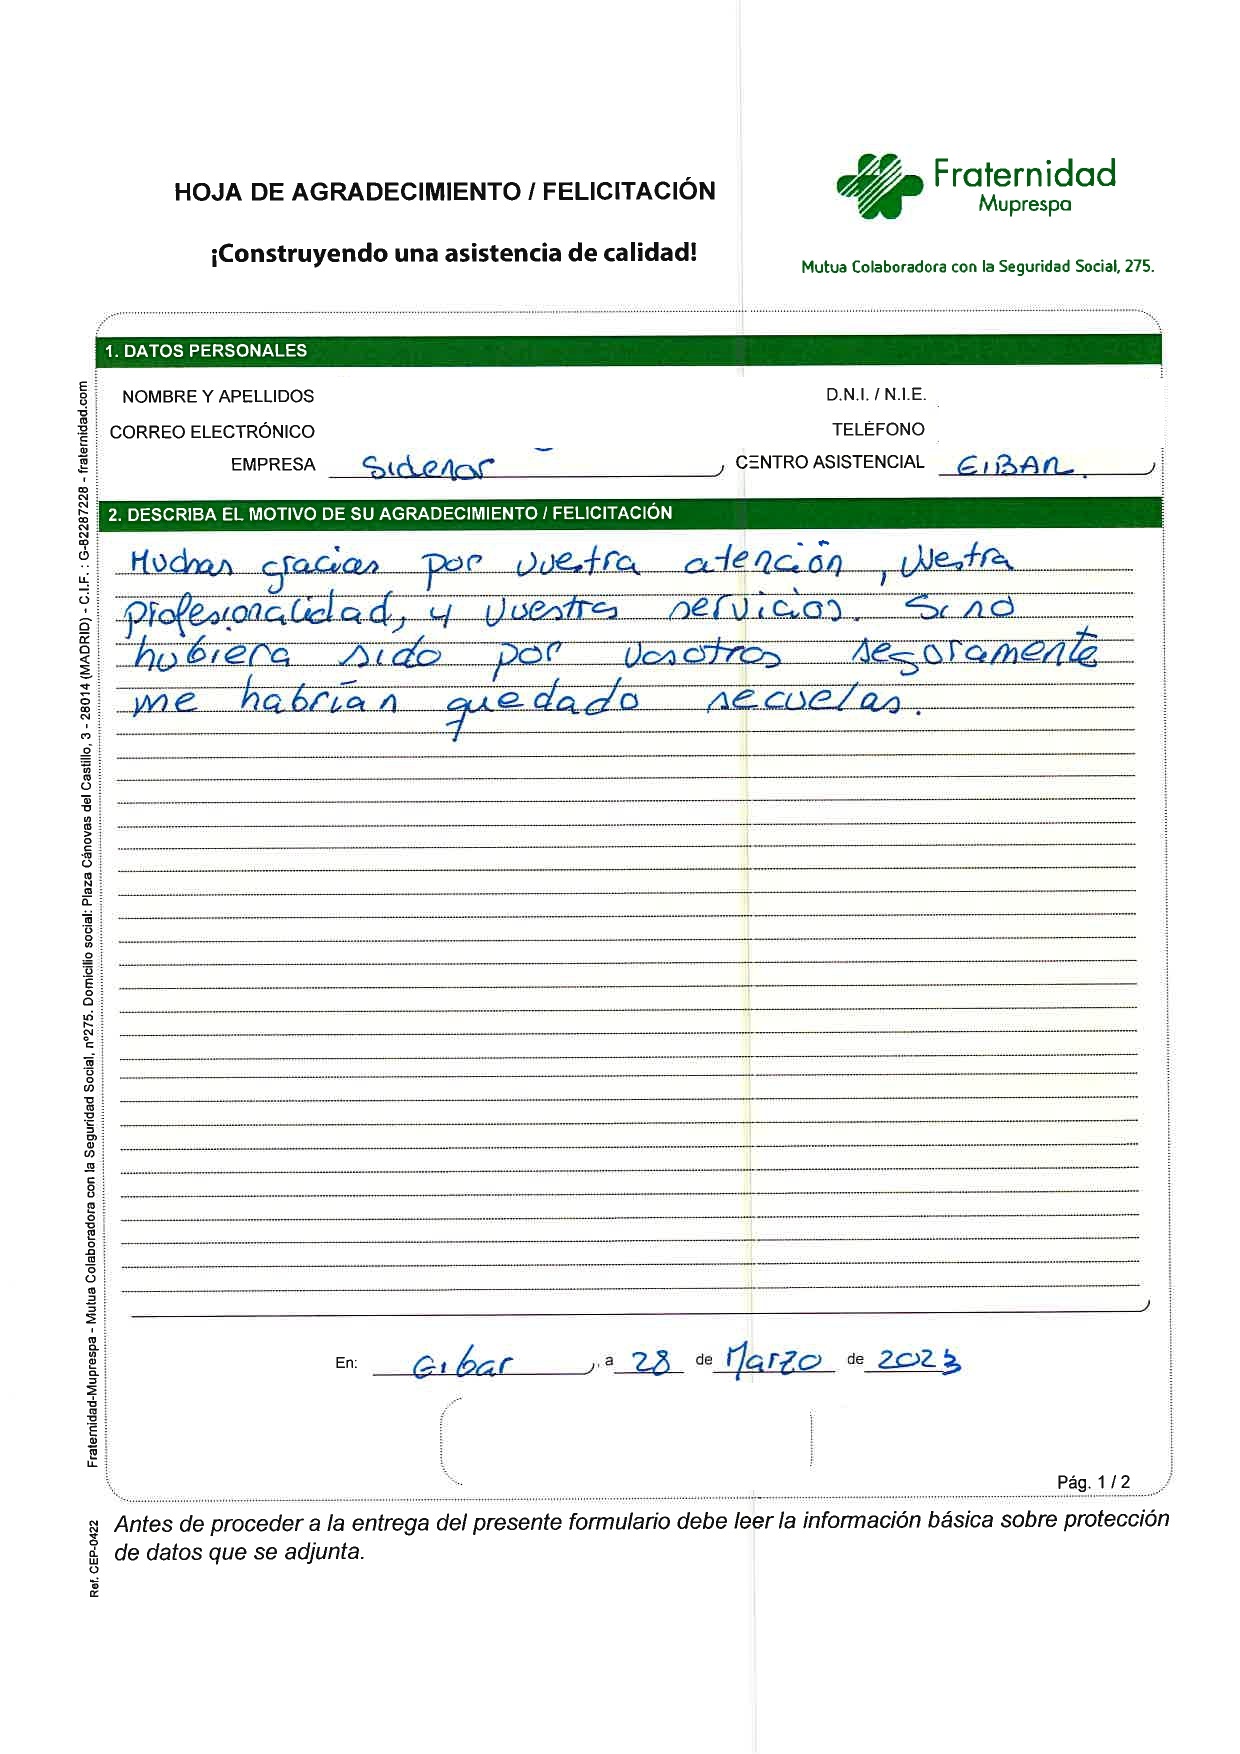 HOJA DE AGRADECIMIENTO / FELICITACIÓN
¡Construyendo una asistencia de calidad!
Fraternidad
Muprespa
Mutua Colaboradora con la Seguridad Social, 275.
1. DATOS PERSONALES
NOMBRE Y APELLIDOS
D.N.I. / N.I.E.
CORREO ELECTRÓNICO
TELÉFONO
EMPRESA Sidenor
CENTRO ASISTENCIAL EIBAR.
2. DESCRIBA EL MOTIVO DE SU AGRADECIMIENTO / FELICITACIÓN
Muchas gracias por vuestra atención, vuestra
profesionalidad, y vuestros servicios. Si no
hubiera sido por vosotros seguramente
me habrían quedado secuelas.
En: Eibar, a 28 de Marzo de 2023
Pág. 1 / 2
Antes de proceder a la entrega del presente formulario debe leer la información básica sobre protección
de datos que se adjunta.
Fraternidad-Muprespa - Mutua Colaboradora con la Seguridad Social, nº275. Domicilio social: Plaza Cánovas del Castillo, 3 - 28014 (MADRID) - C.I.F. : G-82287228 - fraternidad.com
Ref. CEP-0422